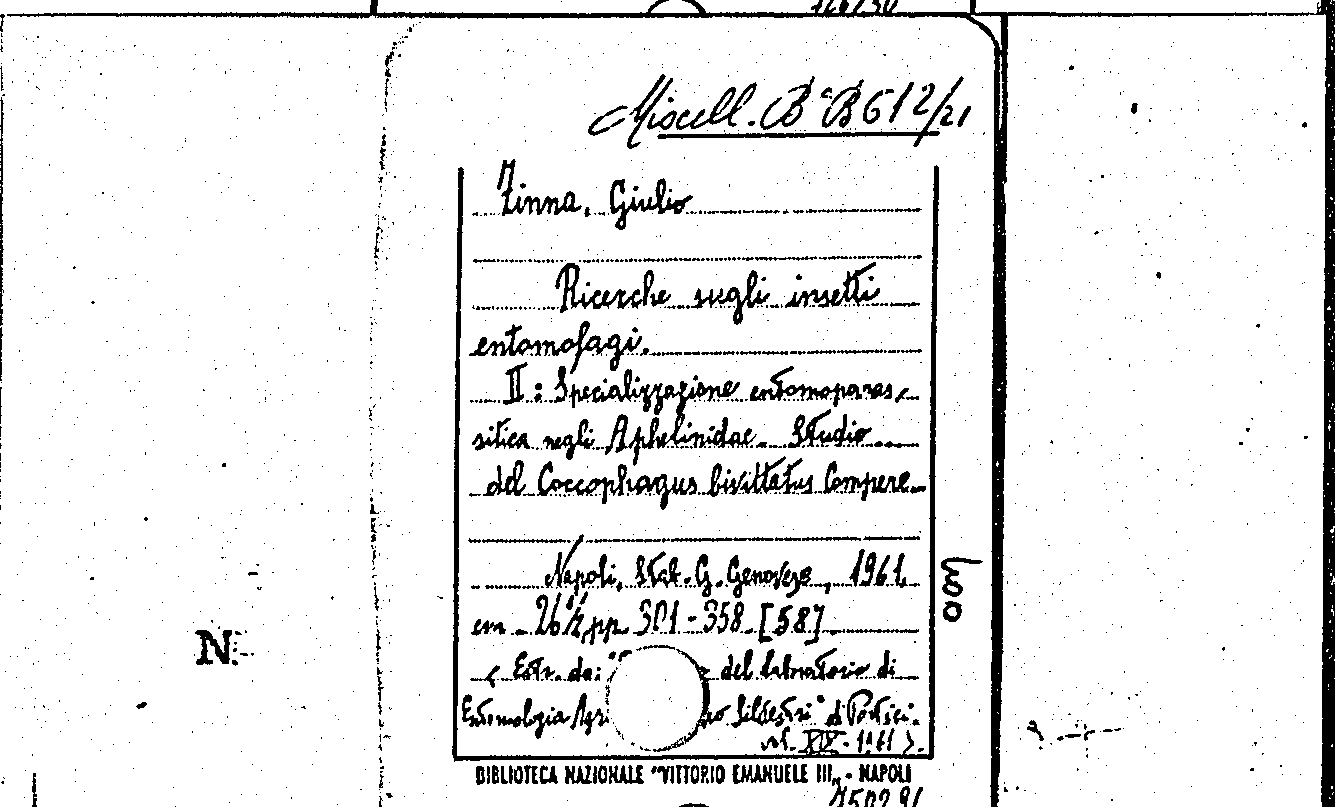 Miscell. B^a B 612/21
Zinna, Giulio
Ricerche sugli insetti
entomofagi.
II: Specializzazione entomoparas-
sitica negli Aphelinidae. Studio
del Coccophagus bivittatus Compere.
Napoli, Stab. G. Genovese, 1961
cm 26½, pp. 301-358 [58]
(Estr. da: del laboratorio di
Entomologia Agr Silvestri" di Portici.
vol. XIX-1961).
Leo
N.
BIBLIOTECA NAZIONALE "VITTORIO EMANUELE III„ - NAPOLI